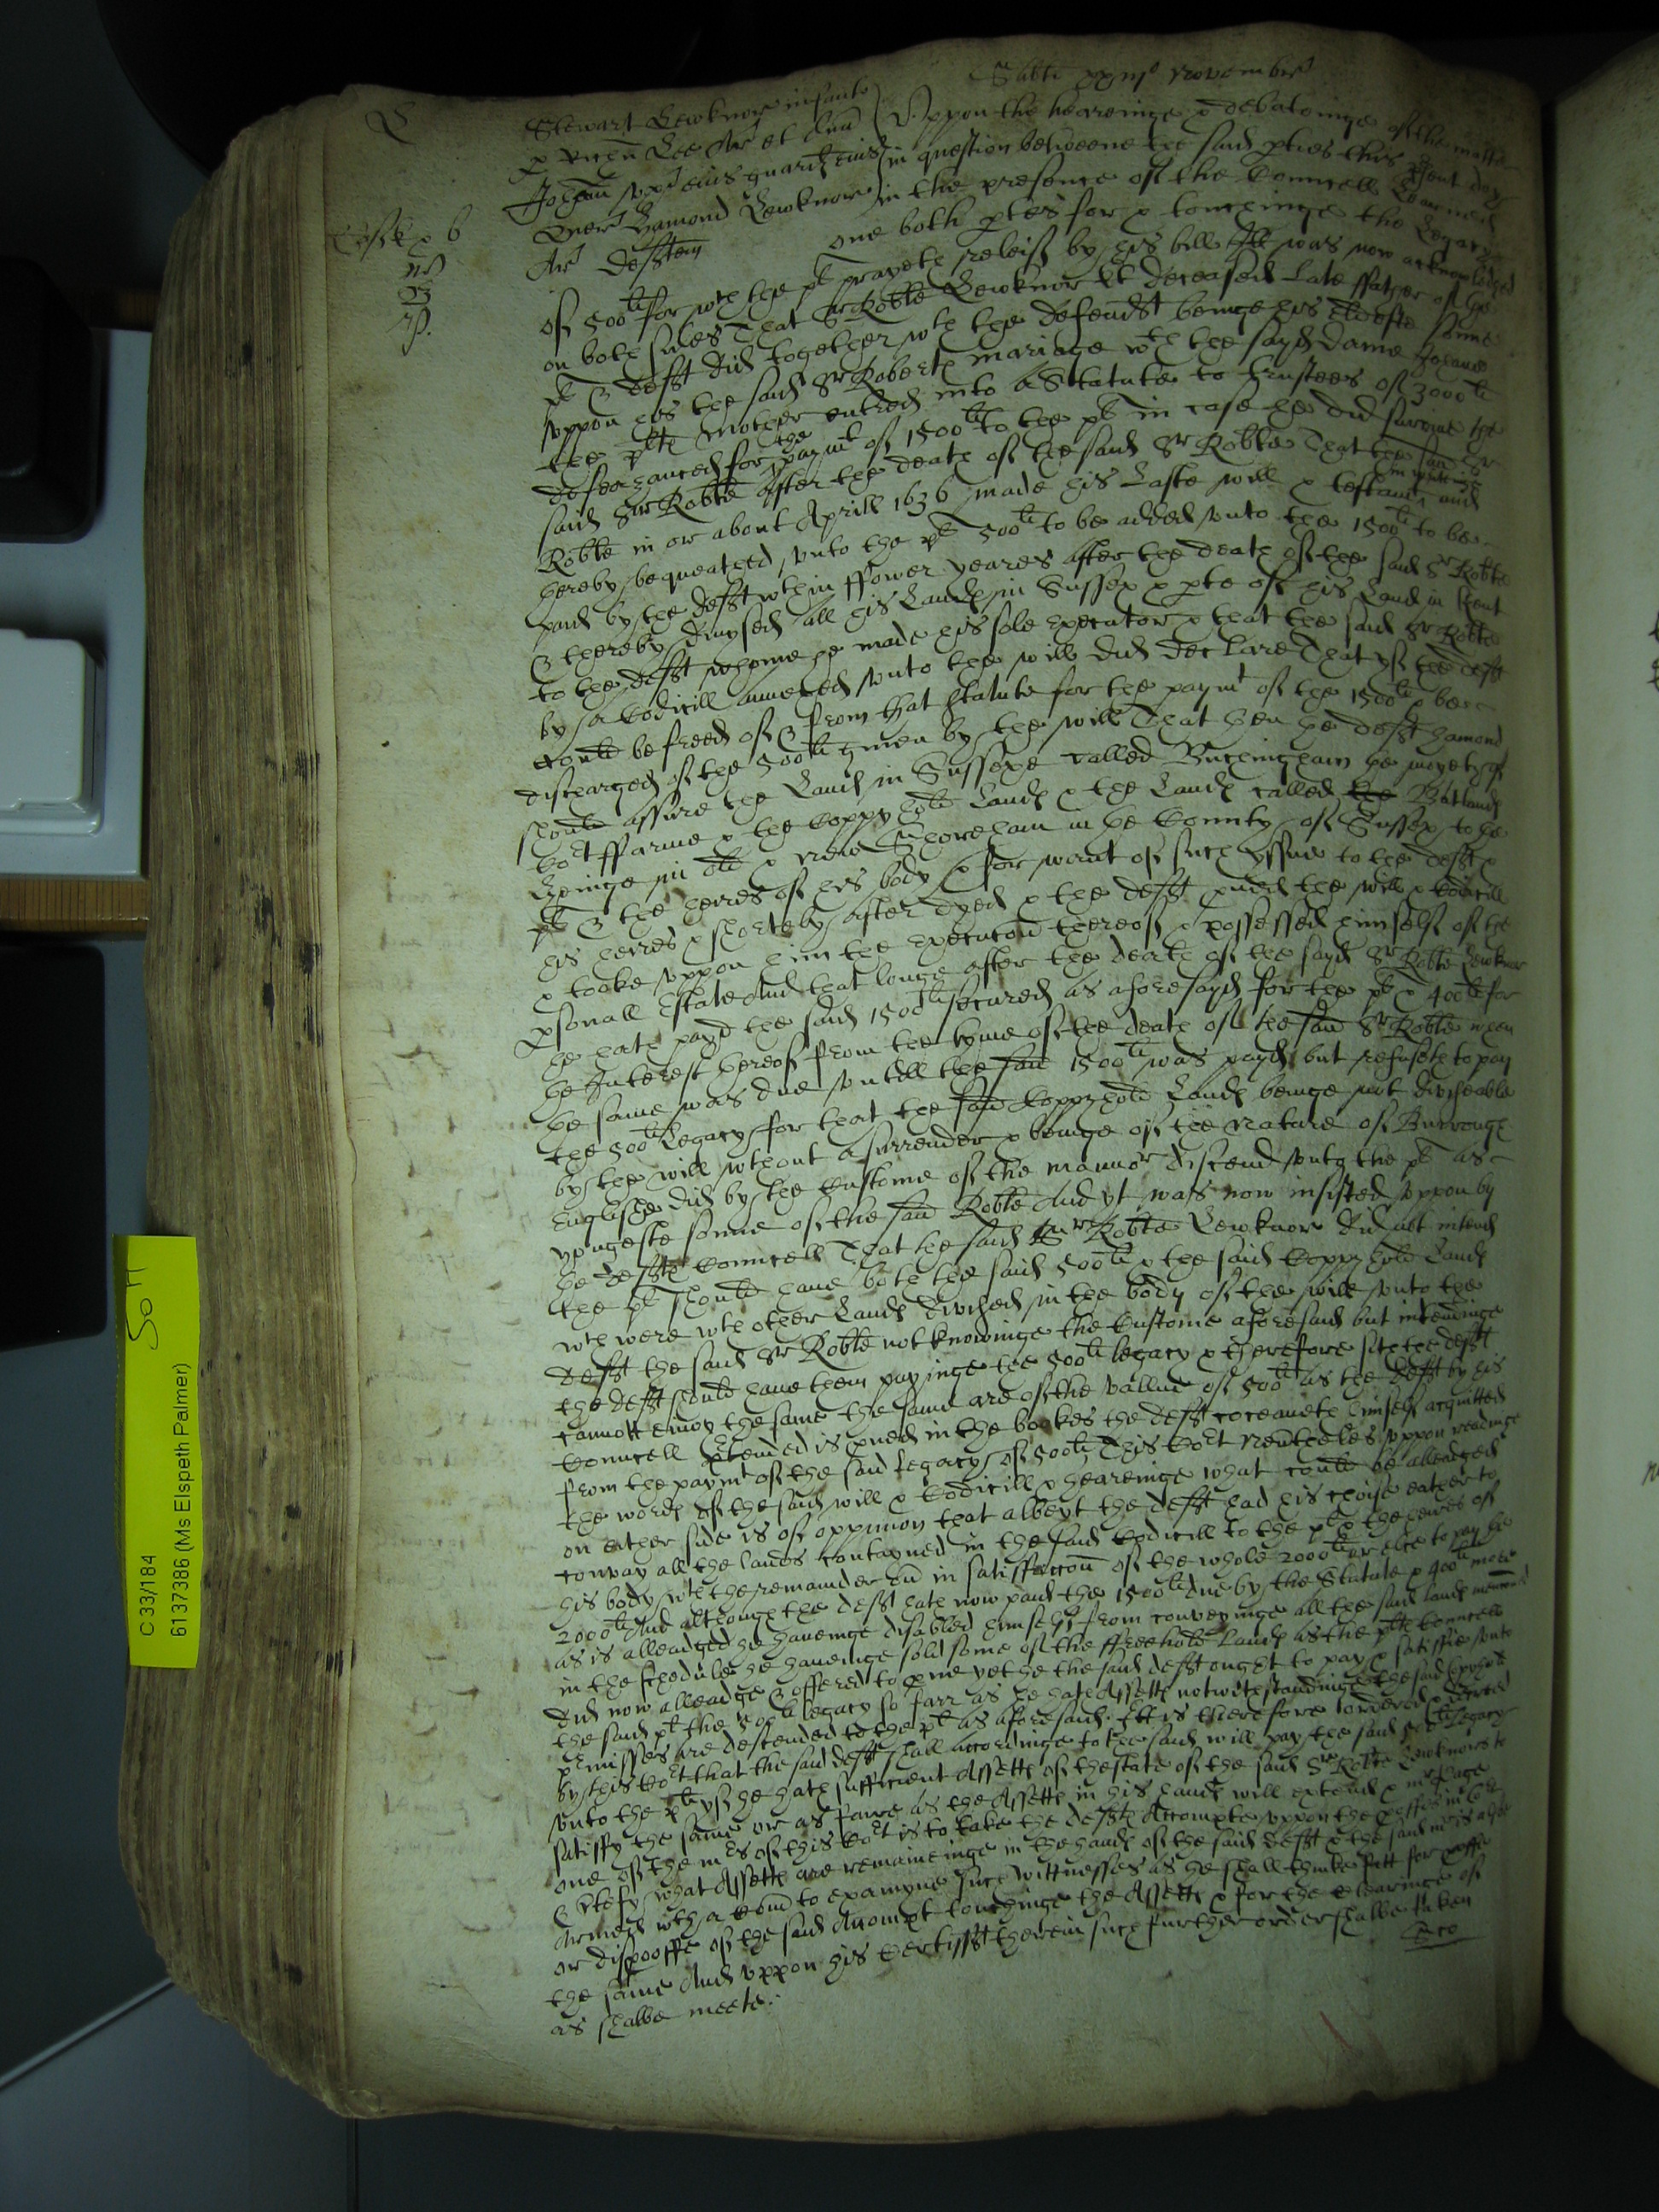 Stewart Lewknor infante
Ar et dna
Johem eius guard eius
quer Hamond Lewknor
Ar defften
Uppon the hearinge & debatinge of the matter
in question betweene the said pties this psent day
in the presence of the Councell Learned
one both ptes for & touchinge the Legacy
of 500li for wch the plt prayeth releif by his bill It was now acknowledged
on both sides That Sr Robte Lewknor kt deceased late ffather of the
plt & defft did together wth the defendt beinge his eldeste sonne
uppon his the said Sr Roberte mariage wth the sayd Dame Johane
the plts mother entred into a Statute to trustees of 3000li
defeazanced for the paymt of 1500li to the plt in case he did survive the
said Sr Robte after the death of the said Sr Robte That the said Sr
Robte in or about Aprill 1636 made his Laste will & testamt in writinge and
hereby bequeathed unto the plt 500li to be added unto the 1500li to be
paid by the defft wthin ffower yeares after the death of the said Sr Robte
& thereby devysed all his Lands in Sussex & pte of his Land in Kent
to the defft whome he made his sole Executor & that the said Sr Robte
by a Codicill annexed unto the will did declare That yf the defft
could be freed of & from that statute for the paymt of the 1500li & bee
discharged of the 500li given by the will That then he defft Hamond
should assure the Land in Sussexe called Buckingham he moyety of
Cort ffarme & the Coppyhold Lands & the Lands called the Batlands
Lyinge in old & new Shoreham in he County of Sussex to he
plt & the heires of his body & for want of such yssue to the defft &
his heires & shortely after dyed & the defft pved the will & Codicill
& tooke uppon him the Execucon thereof & possessed himself of the
psonall Estate And that longe after the death of the sayd Sr Robte Lewknor
he hath payd the said 1500li secured as aforesayd for the plt & 400li for
he Interest hereof from the tyme of the death of the said Sr Robte when
he same was due untill the said 1500li was payd but refuseth to pay
the 500li Legacy for that the said Coppyhold Lands beinge not deviseable
by the will wthout a surrender & beinge of the nature of Burrough
Englishe did by the Custome of the mannor discend unto the plt as
yongeste sonne of the said Robte And yt was now insisted uppon by
he deffts Councell That he said Sr Robte Lewknor did not intend
the plt should have both the said 500li & the said Coppyhold Lands
wch were wth other Lands devised in the body of the will unto the
defft the said Sr Robte not knowinge the Custome aforesaid but intendinge
the defft should have them payinge the 500li legacy & therefore sith the defft
cannott enioy the same the same are of the vallue of 500li as the defft by his
Councell ptended is pved in the bookes the defft conceaveth himself acquitted
from the paymt of the said Legacy of 500li This Cort neutheles uppon readinge
the words of the said will & Codicill & hearinge what could be alleadged
on eather side is of oppinion that albeyt the defft had his choise eather to
convay all the lands contayned in the said Codicill to the plt & the heires of
his body wth the remainder in satisfaccon of the whole 2000li or else to pay he
2000li And although the defft hath now paid the 1500li due by the Statute & 400li more
as is alleadged he haveinge disabled himselfe from conveyinge all the said lands
in the schedule he haveinge sold some of the ffreehold Lands as the plts Councell
did now alleadge & offered to pve yet he the said defft ought to pay & satisfie unto
the said plt the 500li legacy so farr as he hath Assetts notwithstandinge the said Copihold
pmisses are descended to the plt as aforesaid. It is therefore ordered & decreed
by this Cort that the said defft shall accordinge to the said will pay the said 500li Legacy
unto the plt yf he hath sufficient Assetts of thestate of the said Sr Robte Lewknor to
satisfy the same or as farre as the Assetts in his hands will extend & mr Page
one of the mrs of this Cort is to take the deffts Accompte uppon the
& Certefy what Assetts are remaineinge in the hands of the said defft & the said mr is also
armed wth a Comn to examyne such wittnesses as he shall thinke fitt for proffe
or disprooffe of the said Accompt touchinge the Assetts & for the clearinge of
the same And uppon his certifft therein such further order shalbe taken
as shalbe meete.
C 33/184
6137386 (Ms Elspeth Palmer)